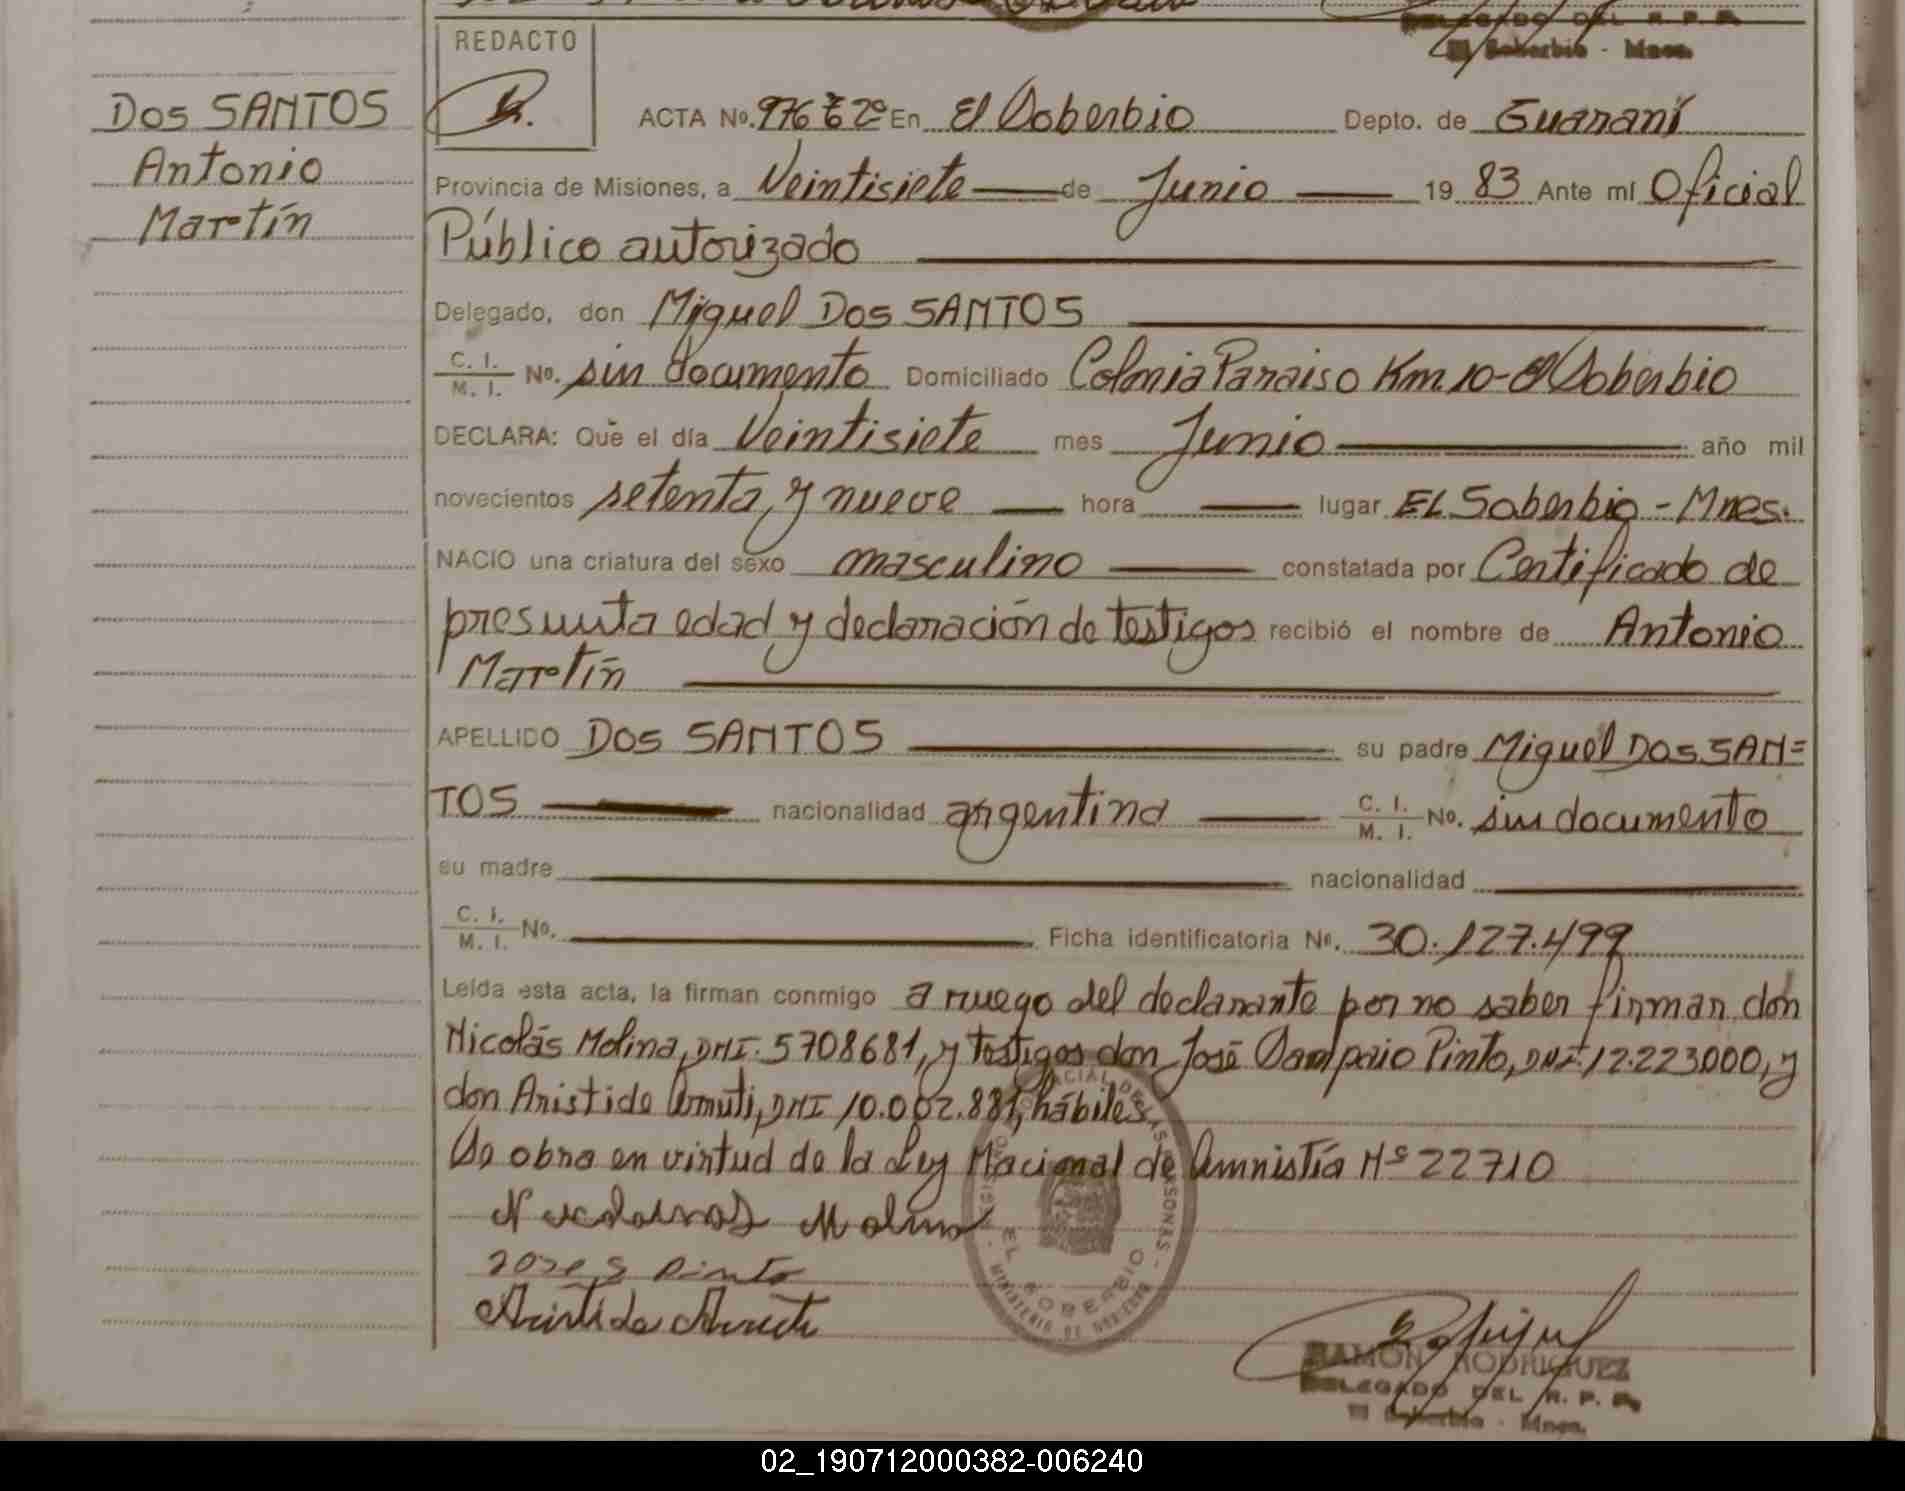 DELEGADO DEL R. P. P.
El Soberbio - Mnes.
REDACTO
Dos SANTOS
Antonio
Martín
ACTA No. 976 Tº 2º En El Soberbio Depto. de Guaraní
Provincia de Misiones, a Veintisiete de Junio 19 83 Ante mí Oficial
Público autorizado
Delegado, don Miguel Dos SANTOS
C. I. / M. I. No. sin documento Domiciliado Colonia Paraiso Km. 10 - El Soberbio
DECLARA: Que el día Veintisiete mes Junio año mil
novecientos setenta y nueve hora lugar EL Soberbio - Mnes.
NACIO una criatura del sexo masculino constatada por Certificado de
presunta edad y declaración de testigos recibió el nombre de Antonio
Martín
APELLIDO Dos SANTOS su padre Miguel Dos SAN=
TOS nacionalidad argentina C. I. / M. I. No. sin documento
su madre nacionalidad
C. I. / M. I. No. Ficha identificatoria No. 30.127.499
Leída esta acta, la firman conmigo a ruego del declarante por no saber firmar don
Nicolás Molina, DNI. 5708681, y testigos don José Sampaio Pinto, DNI. 12.223.000, y
don Aristide Amuti, DNI 10.002.881, hábiles
Se obra en virtud de la Ley Nacional de Amnistía Nº 22710
Molina
Jose S Pinto
Aristide
EL SOBERBIO
MINISTERIO DE GOBIERNO
RAMÓN RODRIGUEZ
DELEGADO DEL R. P. P.
El Soberbio - Mnes.
02_190712000382-006240